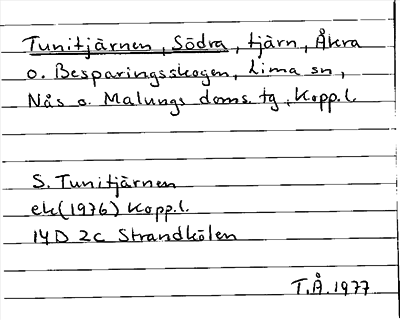 Tunitjärnen, Södra, tjärn, Åkra
o. Besparingsskogen, Lima sn,
Nås o. Malungs doms. tg, Kopp.l.
S. Tunitjärnen
ek(1976) Kopp.l.
14D 2c Strandkölen
T.Å.1977